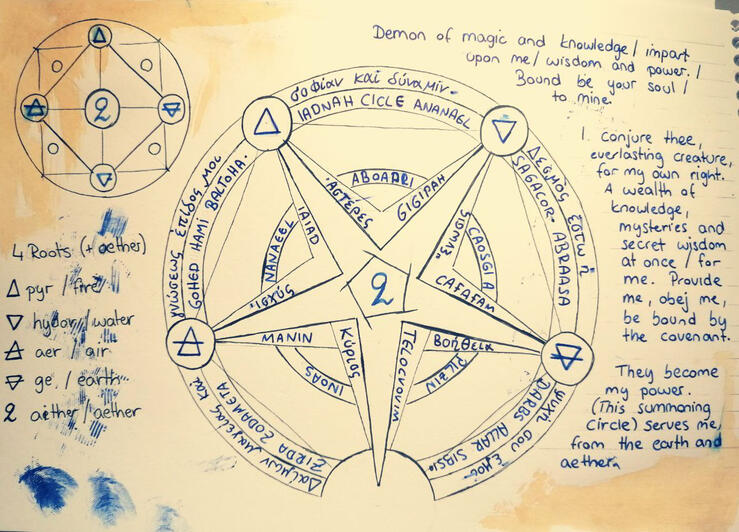 Demon of magic and knowledge / impart
upon me / wisdom and power. /
Bound be your soul /
to mine.
1. conjure thee,
everlasting creature,
for my own right.
A wealth of
knowledge,
mysteries and
secret wisdom
at once / for
me. Provide
me, obej me,
be bound by
the covenant.
They become
my power.
(This summoning
Circle) serves me,
from the earth and
aether.
4 Roots (+ aether)
pyr / fire
hydor / water
aer / air
ge / earth
aether / aether
σοφίαν καί δύναμιν.
IADNAH CICLE ANANAEL
Δεσμός ἔστω ἡ
SAGACOR. ABRAASA
ψυχή σου ἐμοί.
DARBS ALLAR
Δαίμων μαγείας καί
ZIRDA ZODAMETA
γνώσεως ἐπίδος μοι
GOHED HAMI BALTOHA.
ABOAPRI
ἀστέρες
GIGIPAH
NANAEEL
IAIAD
CAOSGI A
CAFAFAM
MANIN
INOAS
Κύριος
TELOCVOVIM
Βοήθεια
PILZIN